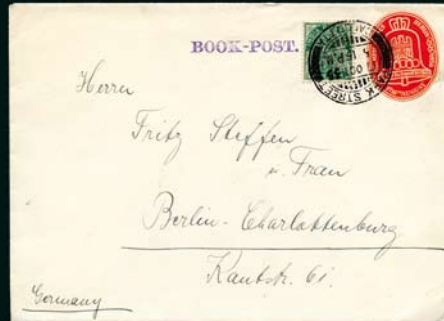 BOOK-POST.
PARK STREET
Herrn
Fritz Steffen
u. Frau
Berlin-Charlottenburg
Kantstr. 61.
Germany